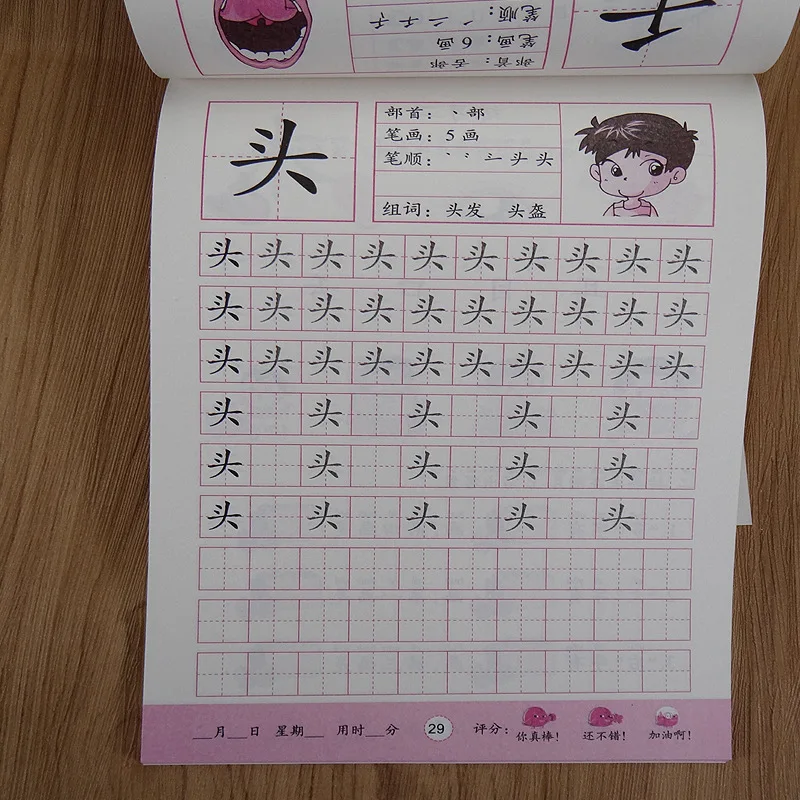 部首：舌部
笔画：6画
笔顺：
头
部首：丶部
笔画：5画
笔顺：丶 头 头
组词：头发 头盔
头 头 头 头 头 头 头 头 头 头
头 头 头 头 头 头 头 头 头 头
头 头 头 头 头 头 头 头 头 头
头 头 头 头 头
头 头 头 头 头
头 头 头 头 头
__月__日 星期__ 用时__分 29 评分： 你真棒！ 还不错！ 加油啊！